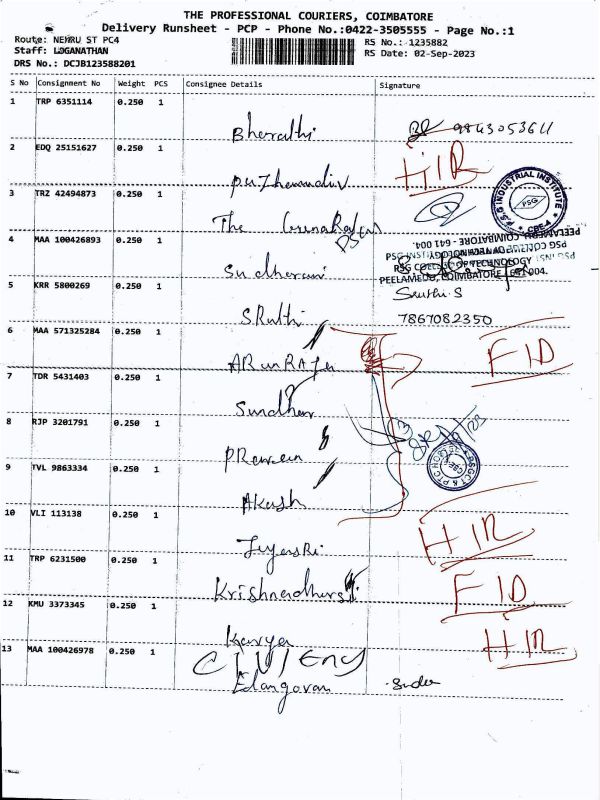 THE PROFESSIONAL COURIERS, COIMBATORE
Delivery Runsheet - PCP - Phone No.:0422-3505555 - Page No.:1
Route: NEHRU ST PC4
RS No.: 1235882
Staff: LOGANATHAN
RS Date: 02-Sep-2023
DRS No.: DCJB123588201
S No Consignment No Weight PCS Consignee Details Signature
1 TRP 6351114 0.250 1
Bharathi 9843053611
2 EDQ 25151627 0.250 1
HIR
3 TRZ 42494873 0.250 1
P.S.G INDUSTRIAL INSTITUTE
PSG
CBE-4
The
4 MAA 100426893 0.250 1
PSG COLLEGE OF TECHNOLOGY
PEELAMEDU, COIMBATORE - 641 004.
5 KRR 5800269 0.250 1
Sruthi.S
SRuthi 7867082350
6 MAA 571325284 0.250 1
ARunRAja FID
7 TDR 5431403 0.250 1
Sundhar
8 RJP 3201791 0.250 1
PRaveen
9 TVL 9863334 0.250 1
Akash
10 VLI 113138 0.250 1
HIR
JeyaSRi
11 TRP 6231500 0.250 1
FID
12 KMU 3373345 0.250 1
HIR
Kavya
13 MAA 100426978 0.250 1
Elangovan